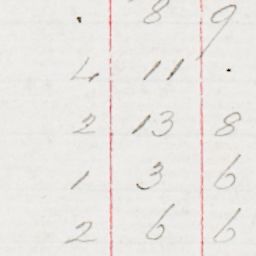 . 8 9
4 11 .
2 13 8
1 3 6
2 6 6